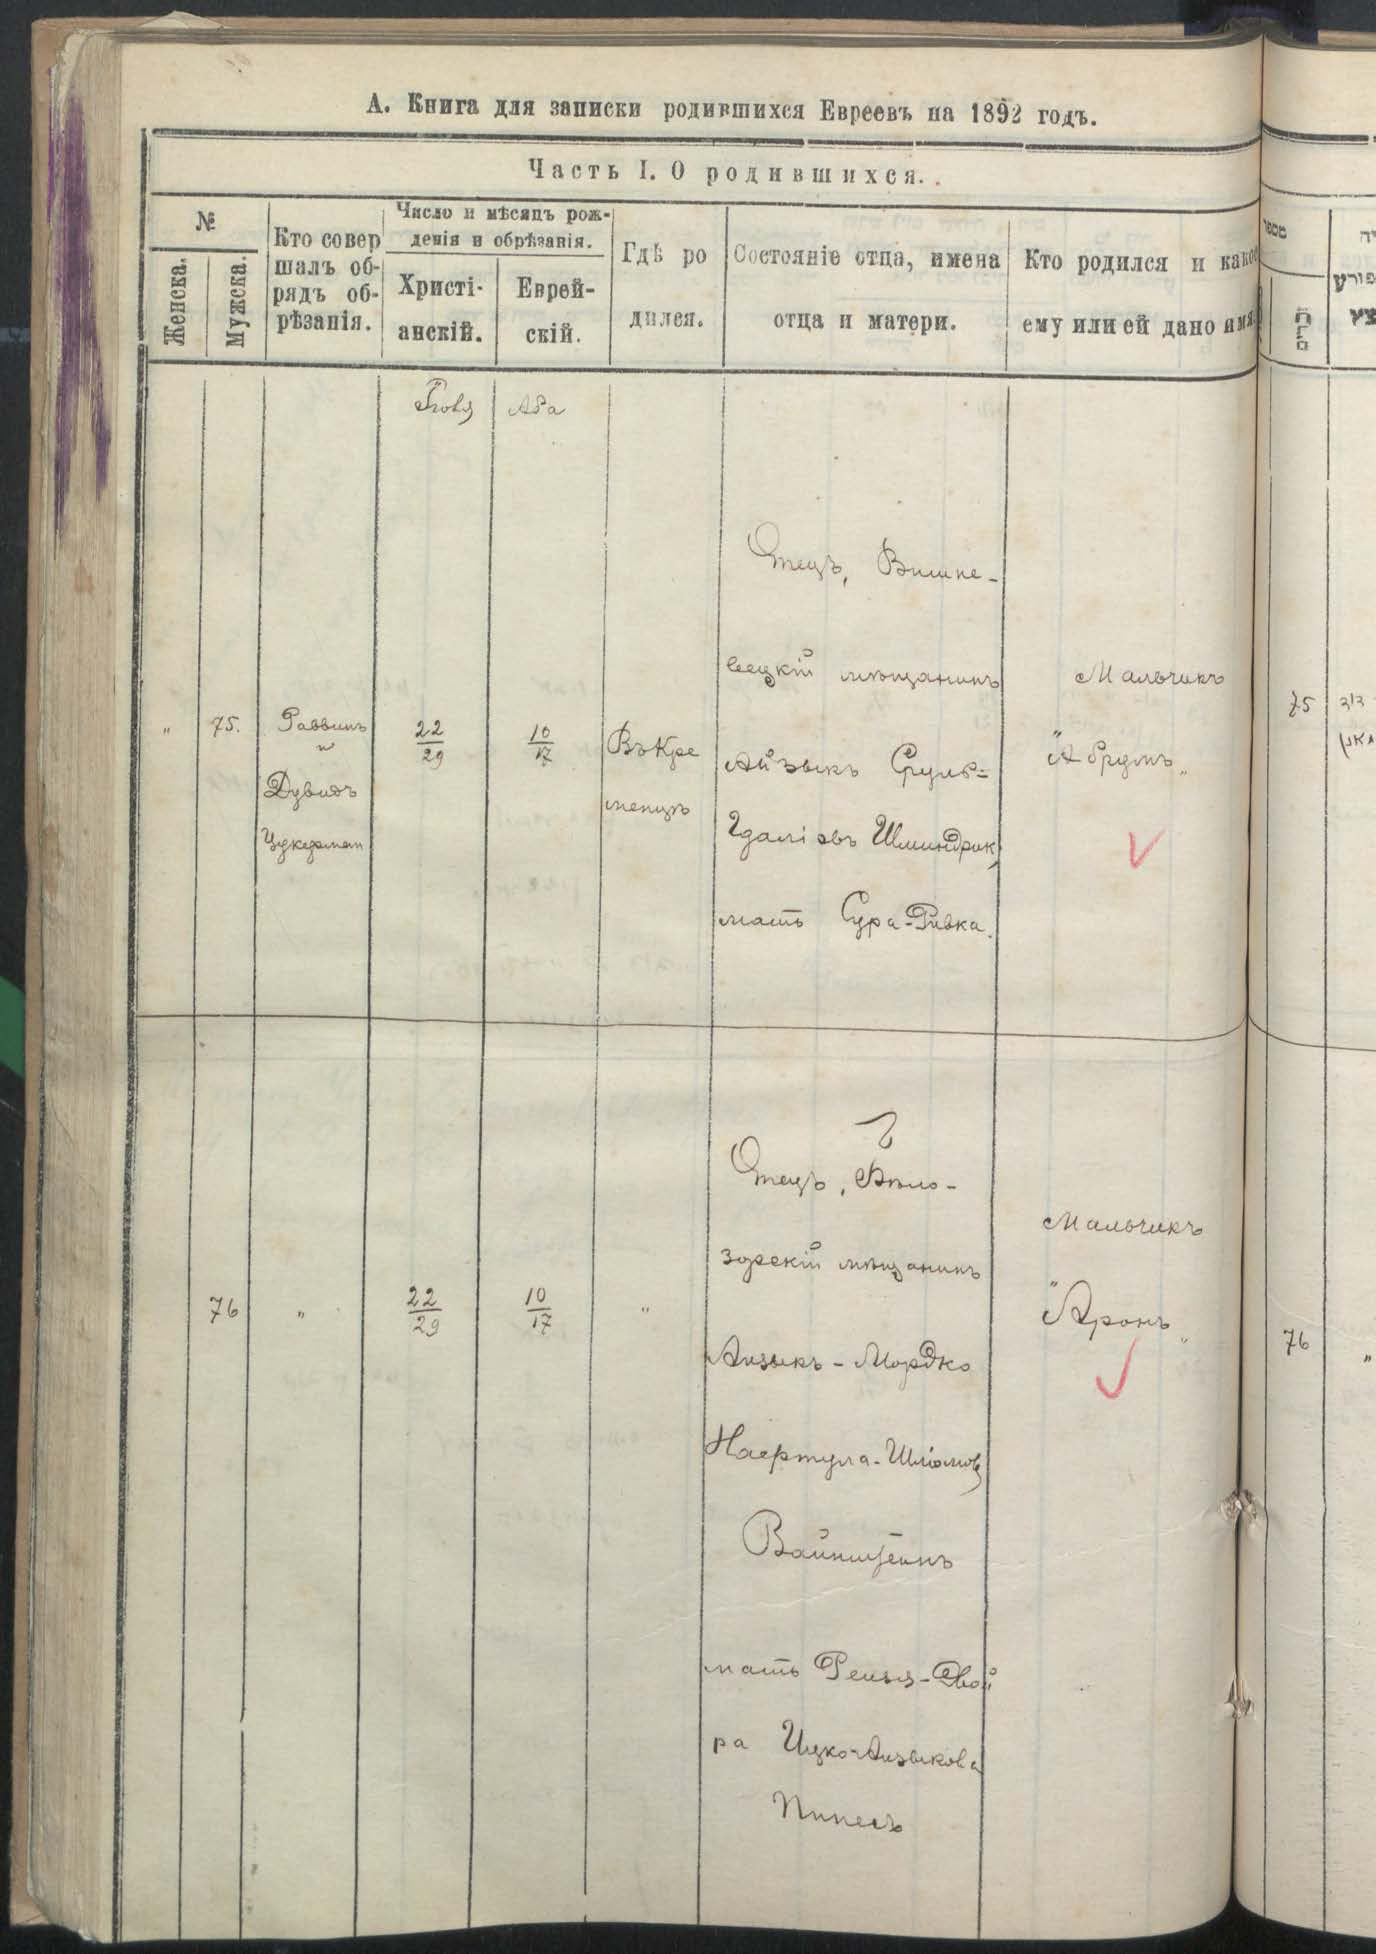 А. Книга для записки родившихся Евреевъ на 1892 годъ.
Часть I. О родившихся.
№
Женска.
Мужска.
Кто совер
шалъ об-
рядъ об-
рѣзанія.
Число и мѣсяцъ рож-
денія и обрѣзанія.
Христі-
анскій.
Еврей-
скій.
Гдѣ ро
дился.
Состояніе отца, имена
отца и матери.
Кто родился и какое
ему или ей дано имя.
Ава
" 75.
Раввинъ
и
Дувидъ
Цукерман
22
29
10
17
Въ Кре
менцѣ
Отецъ, Вишне-
вецкій мѣщанинъ
Айзыкъ Сруль-
Гдаліовъ Шминдрик,
мать Сура-Ривка.
Мальчикъ
"Абрумъ"
76 "
22
29
10
17
"
Отецъ, Бѣло-
зорскій мѣщанинъ
Аизыкъ-Мордко
Нафтула-Шліомов
Вайнштейнъ
мать Рейзя-Двой
ра Ицко-Аизыкова
Пинесъ
Мальчикъ
"Аронъ"
מספר
75
דוד
76
"